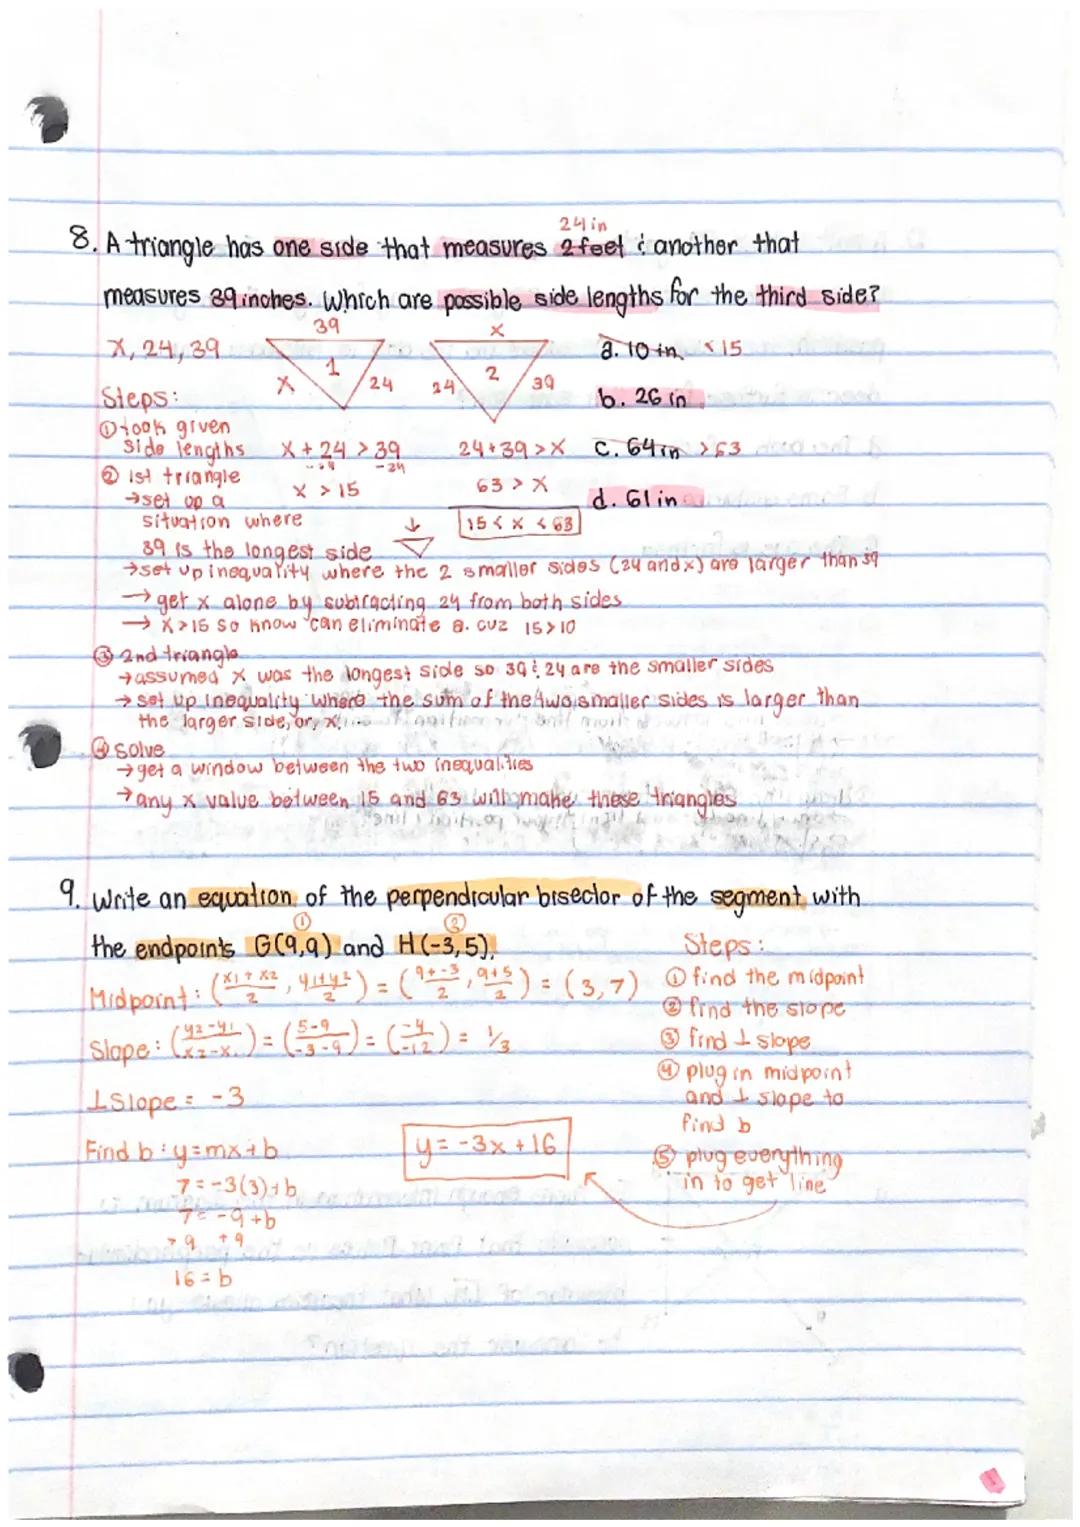 24in
8. A triangle has one side that measures 2 feet & another that
measures 39 inches. Which are possible side lengths for the third side?
x, 24, 39
39
1
x
24
x
2
24
39
a. 10 in < 15
b. 26 in
c. 64 in > 63
d. 61 in
Steps:
① took given
side lengths
x + 24 > 39
-24 -24
x > 15
24+39 > x
63 > x
15 < x < 63
② 1st triangle
→ set up a
situation where
39 is the longest side
→ set up inequality where the 2 smaller sides (24 and x) are larger than 39
→ get x alone by subtracting 24 from both sides
→ x > 15 so know can eliminate a. cuz 15 > 10
③ 2nd triangle
→ assumed x was the longest side so 39 & 24 are the smaller sides
→ set up inequality where the sum of the two smaller sides is larger than
the larger side, or, x.
④ solve
→ get a window between the two inequalities
→ any x value between 15 and 63 will make these triangles
9. Write an equation of the perpendicular bisector of the segment with
① ②
the endpoints G(9,9) and H(-3,5).
Midpoint: (x1 + x2 / 2, y1+y2 / 2) = (9+-3 / 2, 9+5 / 2) = (3,7)
Slope: (y2-y1 / x2-x1) = (5-9 / -3-9) = (-4 / -12) = 1/3
⊥Slope = -3
Find b: y=mx+b
7=-3(3)+b
7= -9+b
+9 +9
16 = b
y = -3x + 16
Steps:
① find the midpoint
② find the slope
③ find ⊥ slope
④ plug in midpoint
and ⊥ slope to
find b
⑤ plug everything
in to get line